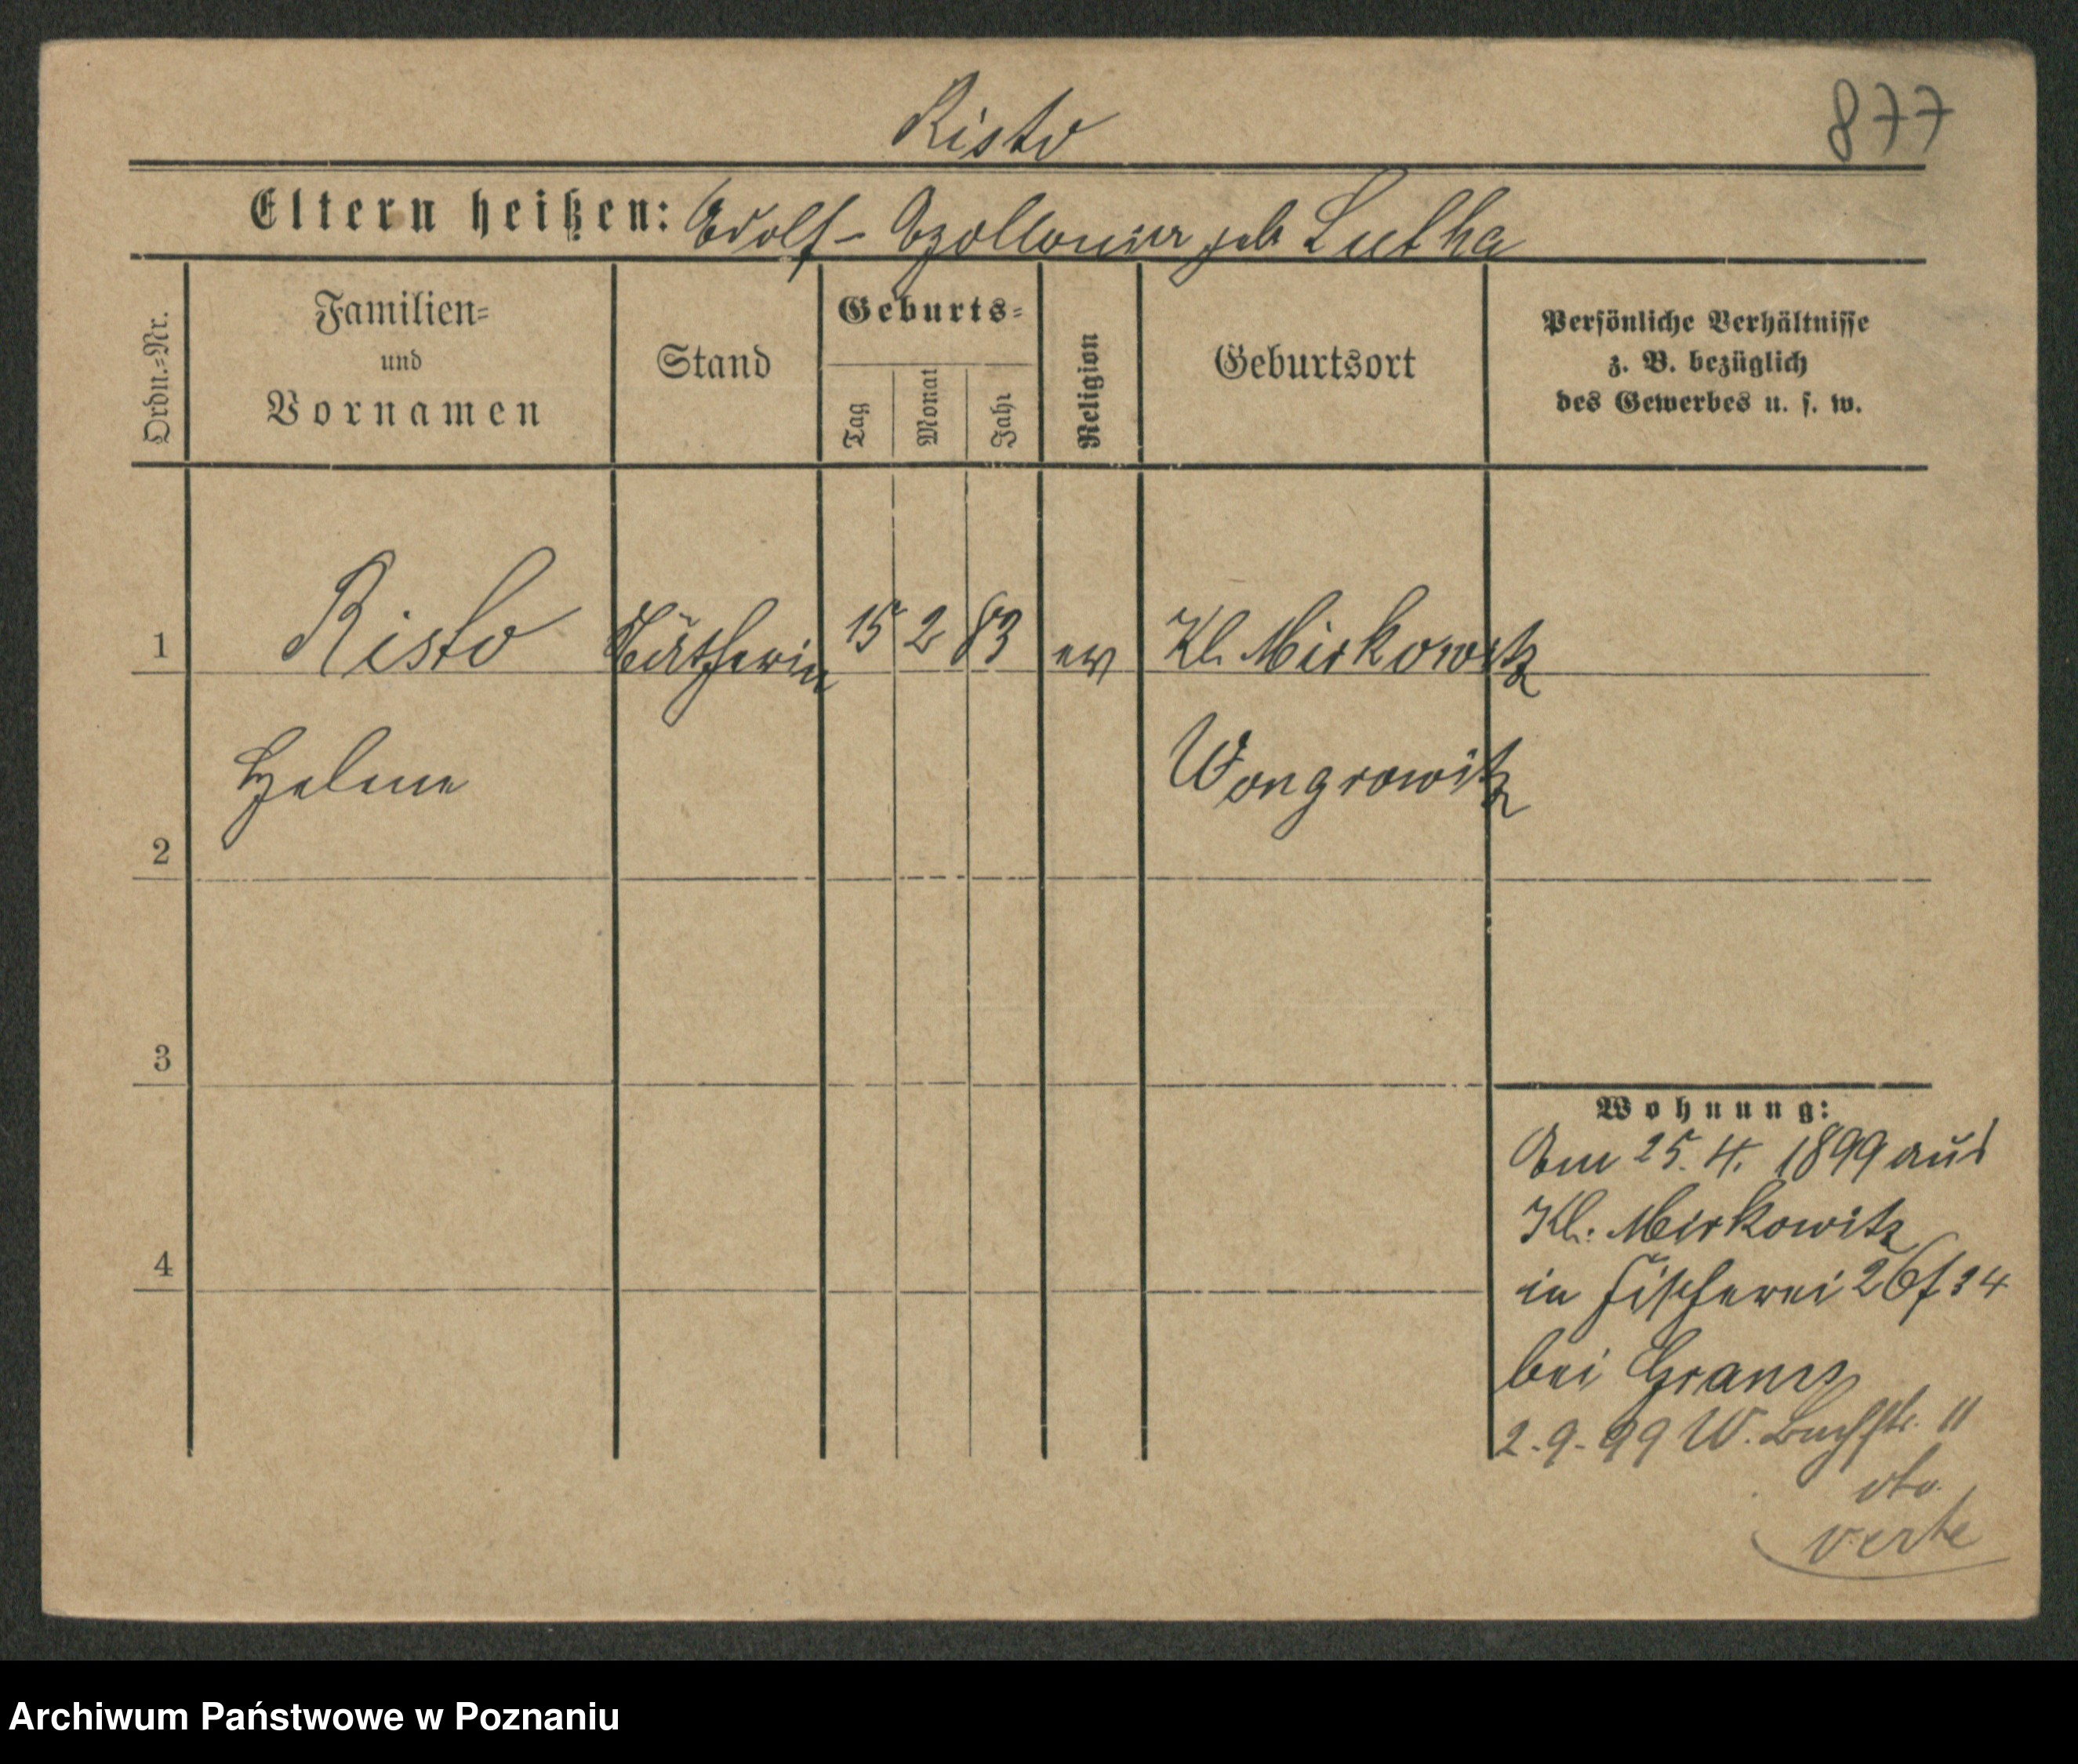 Risto
877
Eltern heißen: Adolf - Apollonia geb Lutka
Ordn.=Nr.
Familien=
und
Vornamen
Stand
Geburts=
Tag
Monat
Jahr
Religion
Geburtsort
Persönliche Verhältnisse
z. B. bezüglich
des Gewerbes u. s. w.
1 Risto Nätherin 15 2 83 ev Kl. Mirkowitz
Helene Wongrowitz
2
3
4
Wohnung:
Am 25. 4. 1899 aus
Kl. Mirkowitz
in Fischerei 26
bei
2.9.99 W. 11
verte
Archiwum Państwowe w Poznaniu